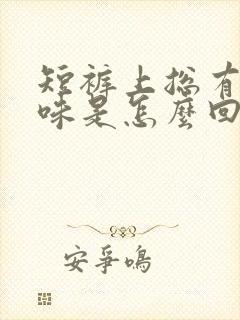 短裤上总有
味是怎么回
安爭鳴